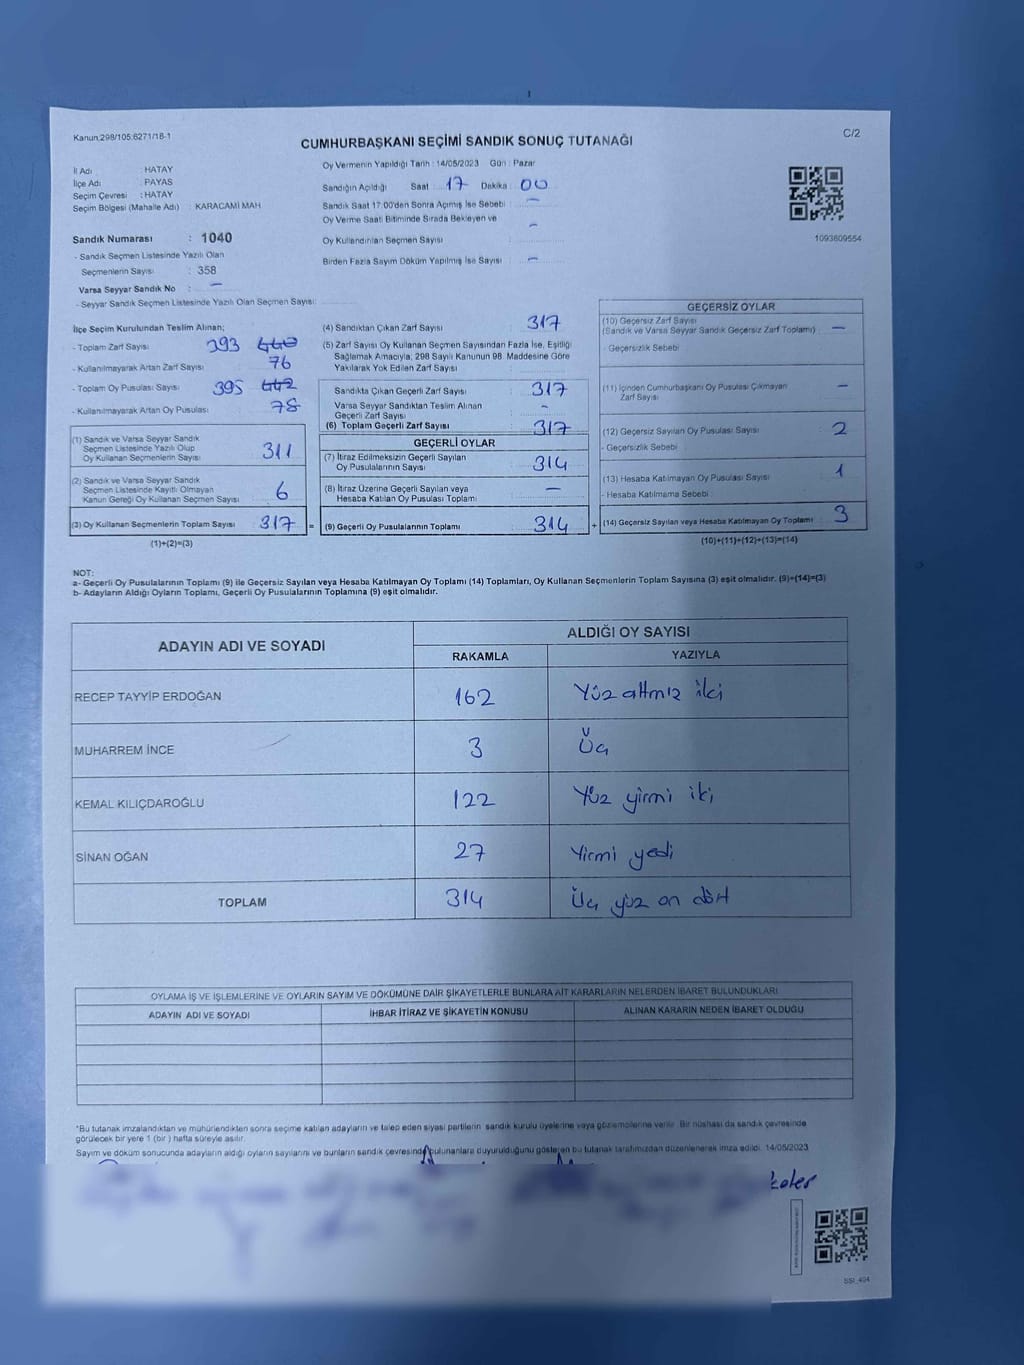 Kanun:298/105,6271/18-1
C/2
CUMHURBAŞKANI SEÇİMİ SANDIK SONUÇ TUTANAĞI
Oy Vermenin Yapıldığı Tarih : 14/05/2023 Gün : Pazar
İl Adı : HATAY
İlçe Adı : PAYAS
Seçim Çevresi : HATAY
Seçim Bölgesi (Mahalle Adı) : KARACAMİ MAH.
Sandığın Açıldığı Saat 17 Dakika 00
Sandık Saat 17:00'den Sonra Açımış İse Sebebi : -
Oy Verme Saati Bitiminde Sırada Bekleyen ve
Oy Kullandırılan Seçmen Sayısı : -
Birden Fazla Sayım Döküm Yapılmış İse Sayısı : -
1093609554
Sandık Numarası : 1040
- Sandık Seçmen Listesinde Yazılı Olan
Seçmenlerin Sayısı : 358
Varsa Seyyar Sandık No : -
- Seyyar Sandık Seçmen Listesinde Yazılı Olan Seçmen Sayısı:
İlçe Seçim Kurulundan Teslim Alınan;
- Toplam Zarf Sayısı 393 440
- Kullanılmayarak Artan Zarf Sayısı 76
- Toplam Oy Pusulası Sayısı 395 442
- Kullanılmayarak Artan Oy Pusulası 78
(1) Sandık ve Varsa Seyyar Sandık
Seçmen Listesinde Yazılı Olup
Oy Kullanan Seçmenlerin Sayısı 311
(2) Sandık ve Varsa Seyyar Sandık
Seçmen Listesinde Kayıtlı Olmayan
Kanun Gereği Oy Kullanan Seçmen Sayısı 6
(3) Oy Kullanan Seçmenlerin Toplam Sayısı 317 =
(1)+(2)=(3)
(4) Sandıktan Çıkan Zarf Sayısı 317
(5) Zarf Sayısı Oy Kullanan Seçmen Sayısından Fazla İse, Eşitliği
Sağlamak Amacıyla, 298 Sayılı Kanunun 98. Maddesine Göre
Yakılarak Yok Edilen Zarf Sayısı
Sandıkta Çıkan Geçerli Zarf Sayısı 317
Varsa Seyyar Sandıktan Teslim Alınan
Geçerli Zarf Sayısı -
(6) Toplam Geçerli Zarf Sayısı 317
GEÇERLİ OYLAR
(7) İtiraz Edilmeksizin Geçerli Sayılan
Oy Pusulalarının Sayısı 314
(8) İtiraz Üzerine Geçerli Sayılan veya
Hesaba Katılan Oy Pusulası Toplamı -
(9) Geçerli Oy Pusulalarının Toplamı 314 +
GEÇERSİZ OYLAR
(10) Geçersiz Zarf Sayısı
(Sandık ve Varsa Seyyar Sandık Geçersiz Zarf Toplamı) -
- Geçersizlik Sebebi
(11) İçinden Cumhurbaşkanı Oy Pusulası Çıkmayan
Zarf Sayısı -
(12) Geçersiz Sayılan Oy Pusulası Sayısı 2
- Geçersizlik Sebebi
(13) Hesaba Katılmayan Oy Pusulası Sayısı 1
- Hesaba Katılmama Sebebi
(14) Geçersiz Sayılan veya Hesaba Katılmayan Oy Toplamı 3
(10)+(11)+(12)+(13)=(14)
NOT:
a- Geçerli Oy Pusulalarının Toplamı (9) ile Geçersiz Sayılan veya Hesaba Katılmayan Oy Toplamı (14) Toplamları, Oy Kullanan Seçmenlerin Toplam Sayısına (3) eşit olmalıdır. (9)+(14)=(3)
b- Adayların Aldığı Oyların Toplamı, Geçerli Oy Pusulalarının Toplamına (9) eşit olmalıdır.
ADAYIN ADI VE SOYADI ALDIĞI OY SAYISI
RAKAMLA YAZIYLA
RECEP TAYYİP ERDOĞAN 162 Yüz altmız iki
MUHARREM İNCE 3 Üç
KEMAL KILIÇDAROĞLU 122 Yüz yirmi iki
SİNAN OĞAN 27 Yirmi yedi
TOPLAM 314 Üç yüz on dört
OYLAMA İŞ VE İŞLEMLERİNE VE OYLARIN SAYIM VE DÖKÜMÜNE DAİR ŞİKAYETLERLE BUNLARA AİT KARARLARIN NELERDEN İBARET BULUNDUKLARI
ADAYIN ADI VE SOYADI İHBAR İTİRAZ VE ŞİKAYETİN KONUSU ALINAN KARARIN NEDEN İBARET OLDUĞU
*Bu tutanak imzalandıktan ve mühürlendikten sonra seçime katılan adayların ve talep eden siyasi partilerin sandık kurulu üyelerine veya gözlemcilerine verilir. Bir nüshası da sandık çevresinde
görülecek bir yere 1 (bir ) hafta süreyle asılır.
Sayım ve döküm sonucunda adayların aldığı oyların sayılarını ve bunların sandık çevresinde bulunanlara duyurulduğunu gösteren bu tutanak tarafımızdan düzenlenerek imza edildi. 14/05/2023